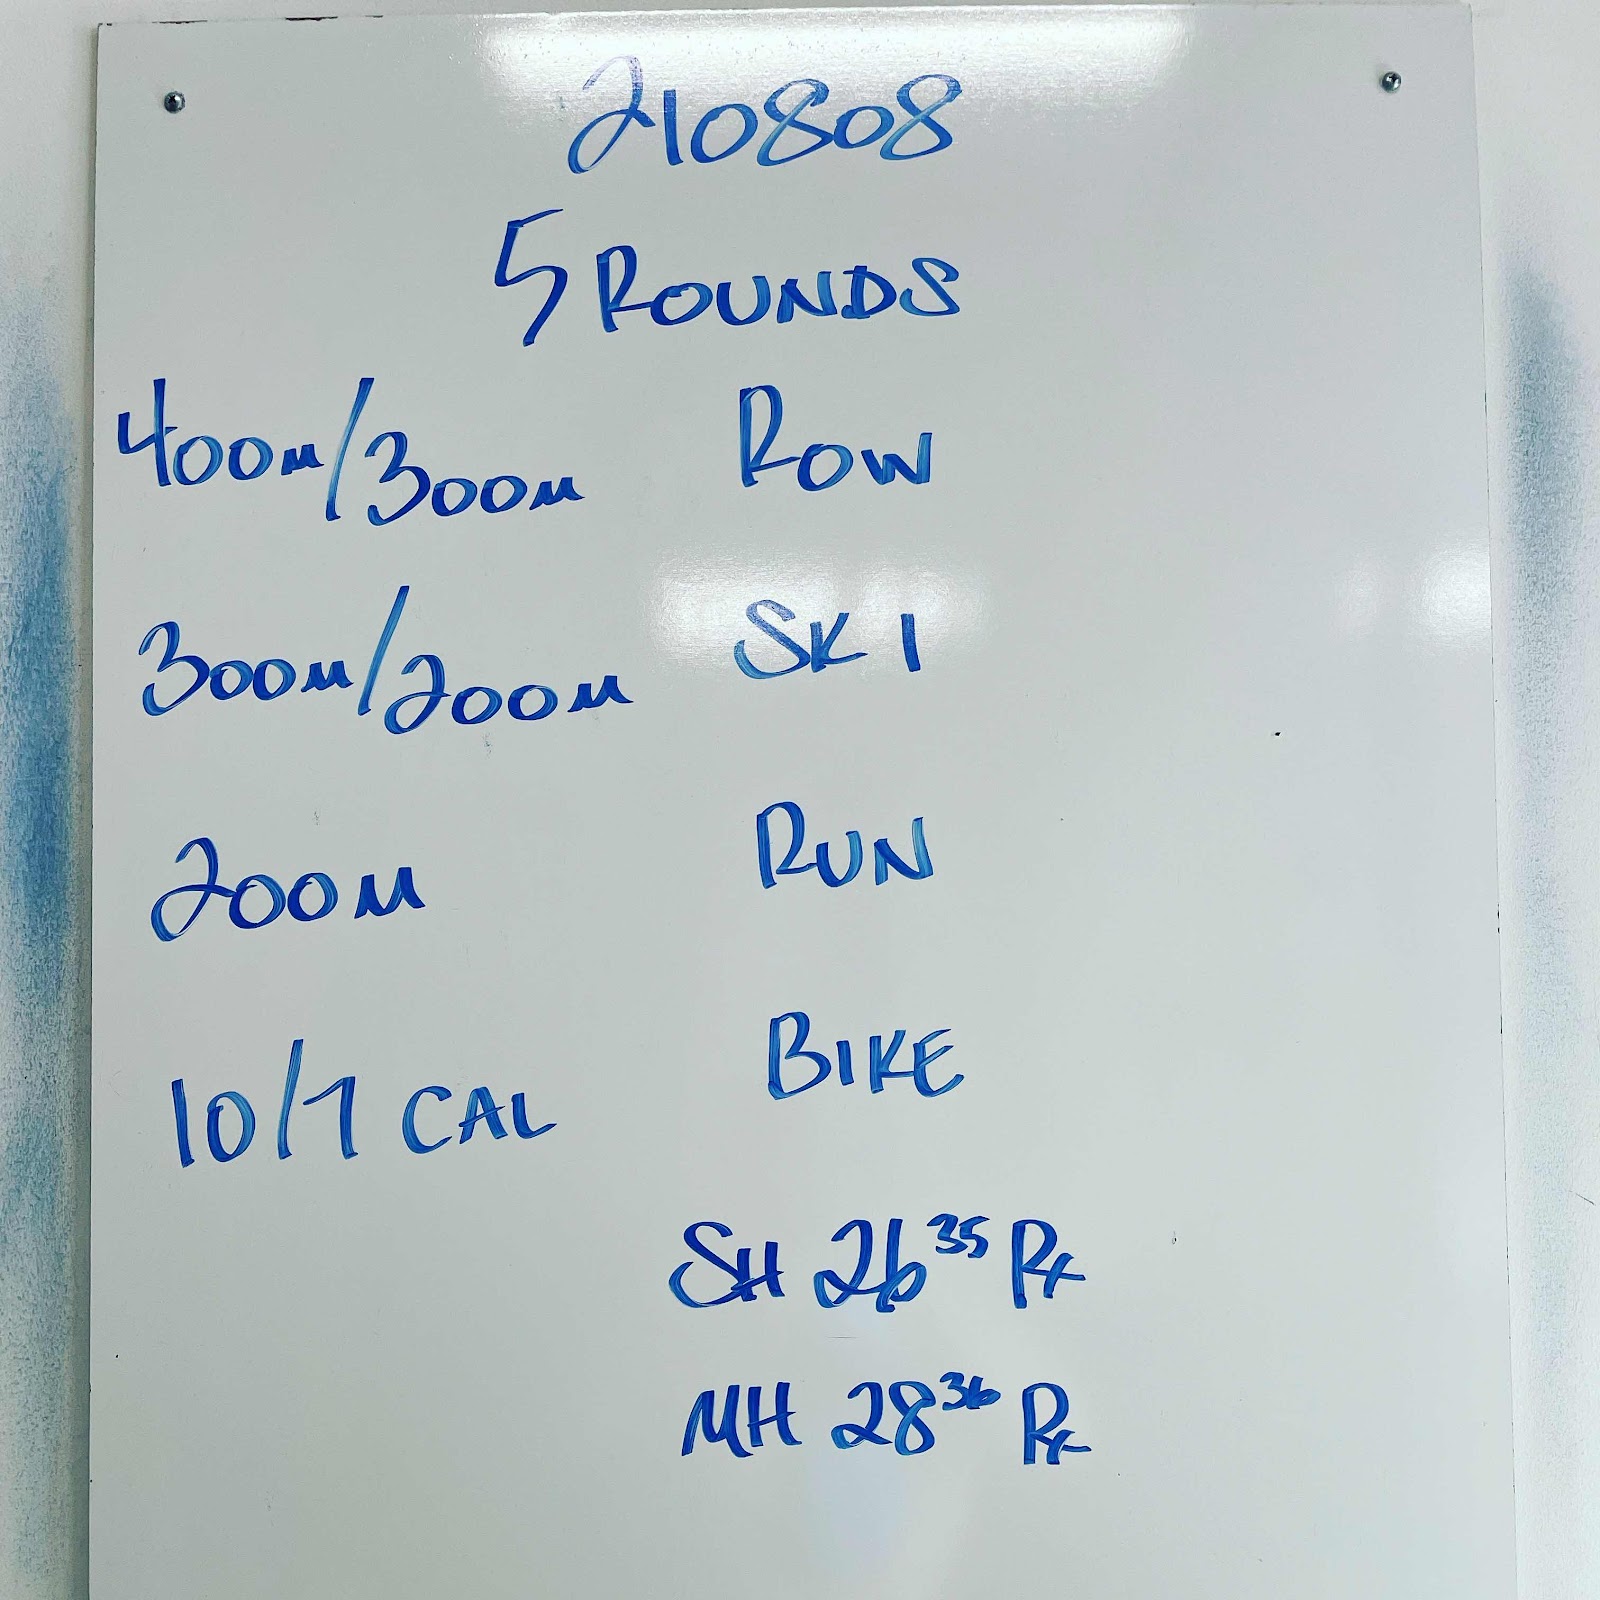 210808
5 ROUNDS
400M/300M ROW
300M/200M SKI
200M RUN
10/7 CAL BIKE
SH 26 35 Rx
MH 28 36 Rx